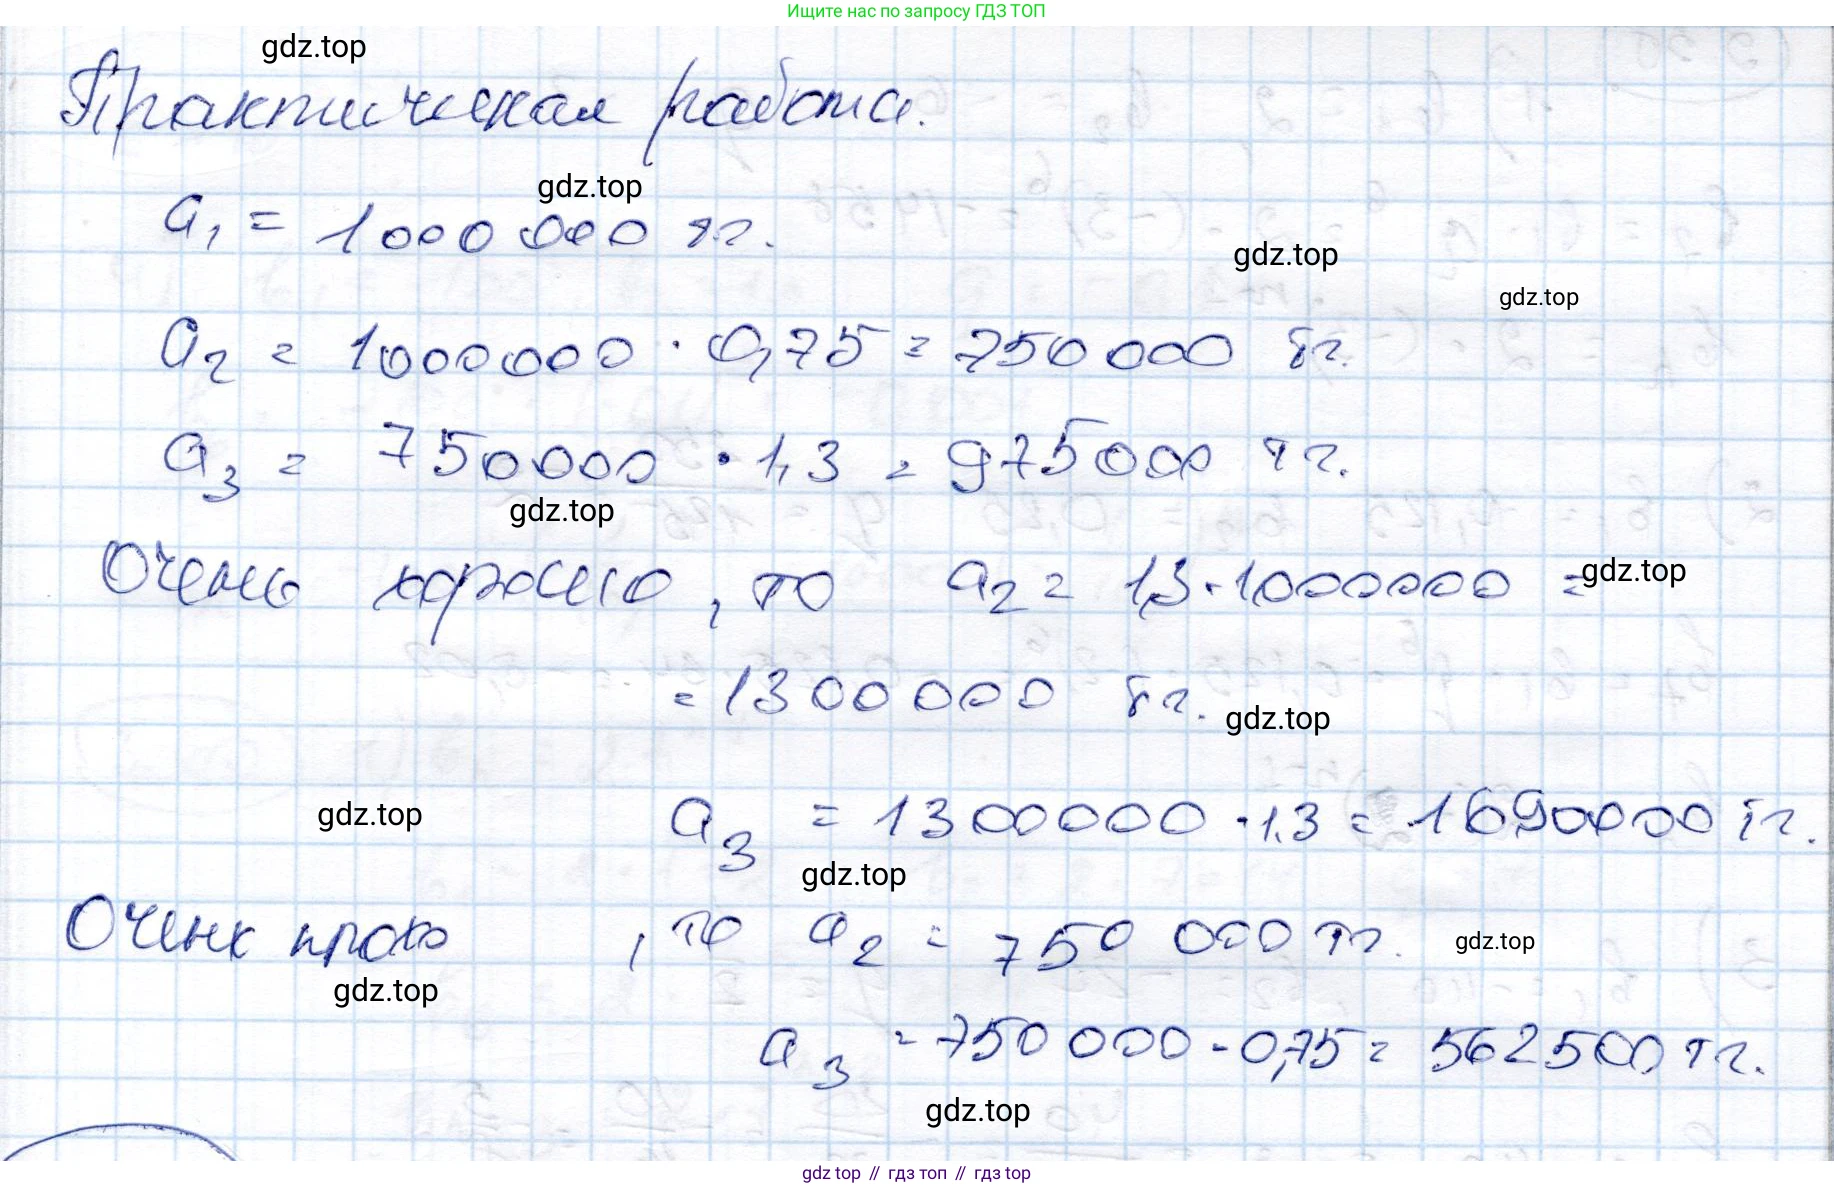 Ищите нас по запросу ГДЗ ТОП
gdz.top
Практическая работа.
gdz.top
a₁ = 1000 000 тг.
gdz.top
gdz.top
a₂ = 1000000 · 0,75 = 750 000 тг.
a₃ = 750000 · 1,3 = 975000 тг.
gdz.top
Очень хорошо, то a₂ = 1,3 · 1000000 =
gdz.top
= 1300000 тг.
gdz.top
a₃ = 1300000 · 1,3 = 1690000 тг.
gdz.top
gdz.top
, то a₂ = 750 000 тг.
gdz.top
gdz.top
a₃ = 750 000 · 0,75 = 562500 тг.
gdz.top
gdz top // гдз топ // gdz top